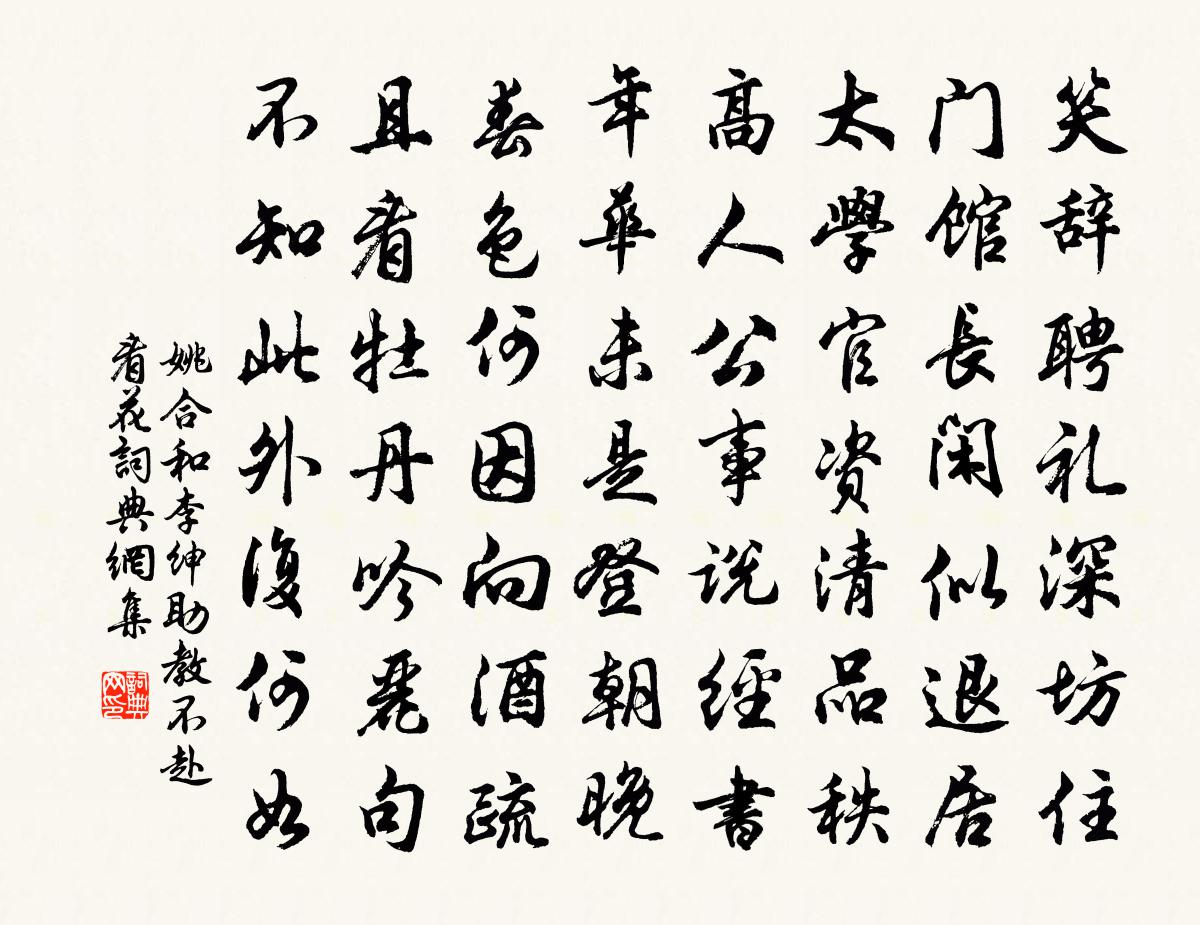 笑辞聘礼深坊住
门馆长闲似退居
太學官资清品秩
高人公事说經書
年華未是登朝晚
春色何因向酒疏
且看牡丹吟麗句
不知此外復何如
姚合和李绅助教不赴
看花詞典網集
詞典网印